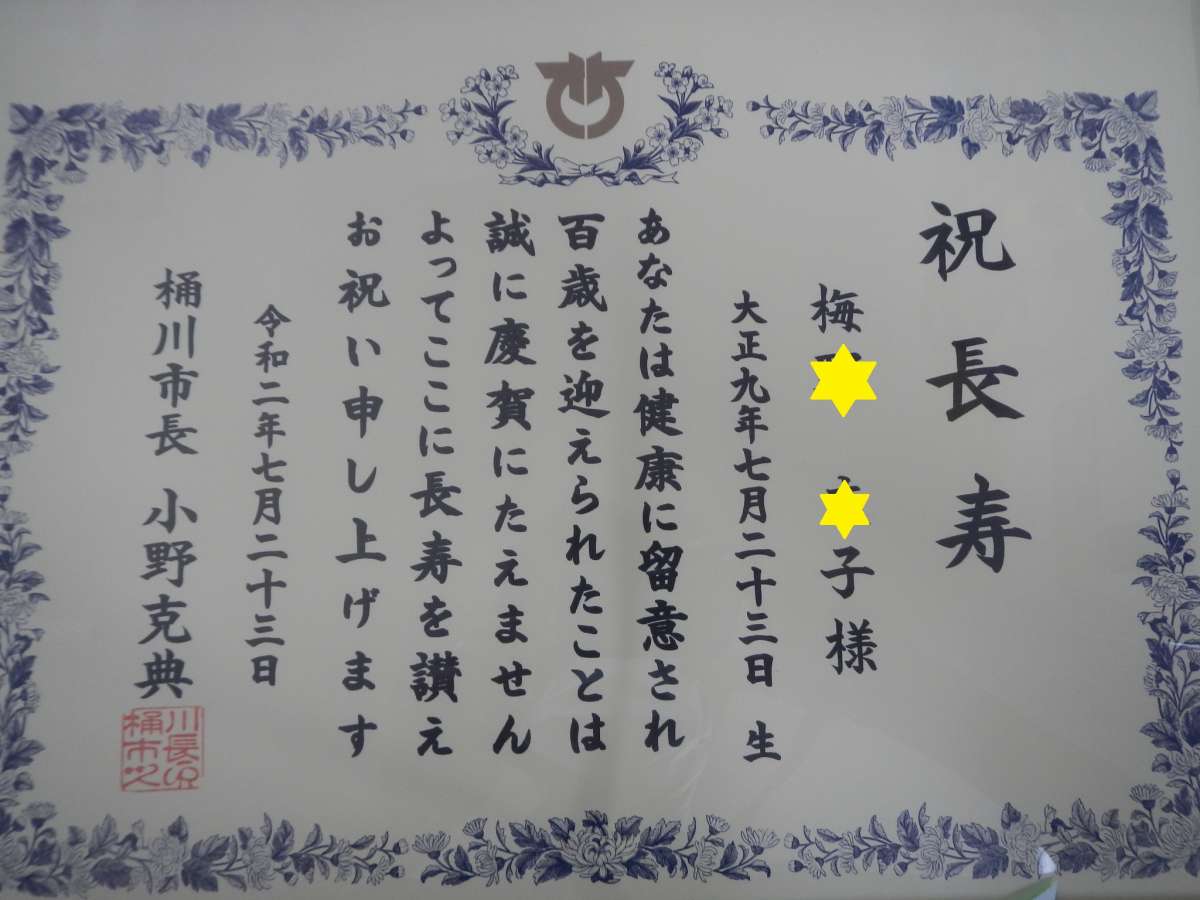 祝長寿
梅 子様
大正九年七月二十三日 生
あなたは健康に留意され
百歳を迎えられたことは
誠に慶賀にたえません
よってここに長寿を讃え
お祝い申し上げます
令和二年七月二十三日
桶川市長 小野克典